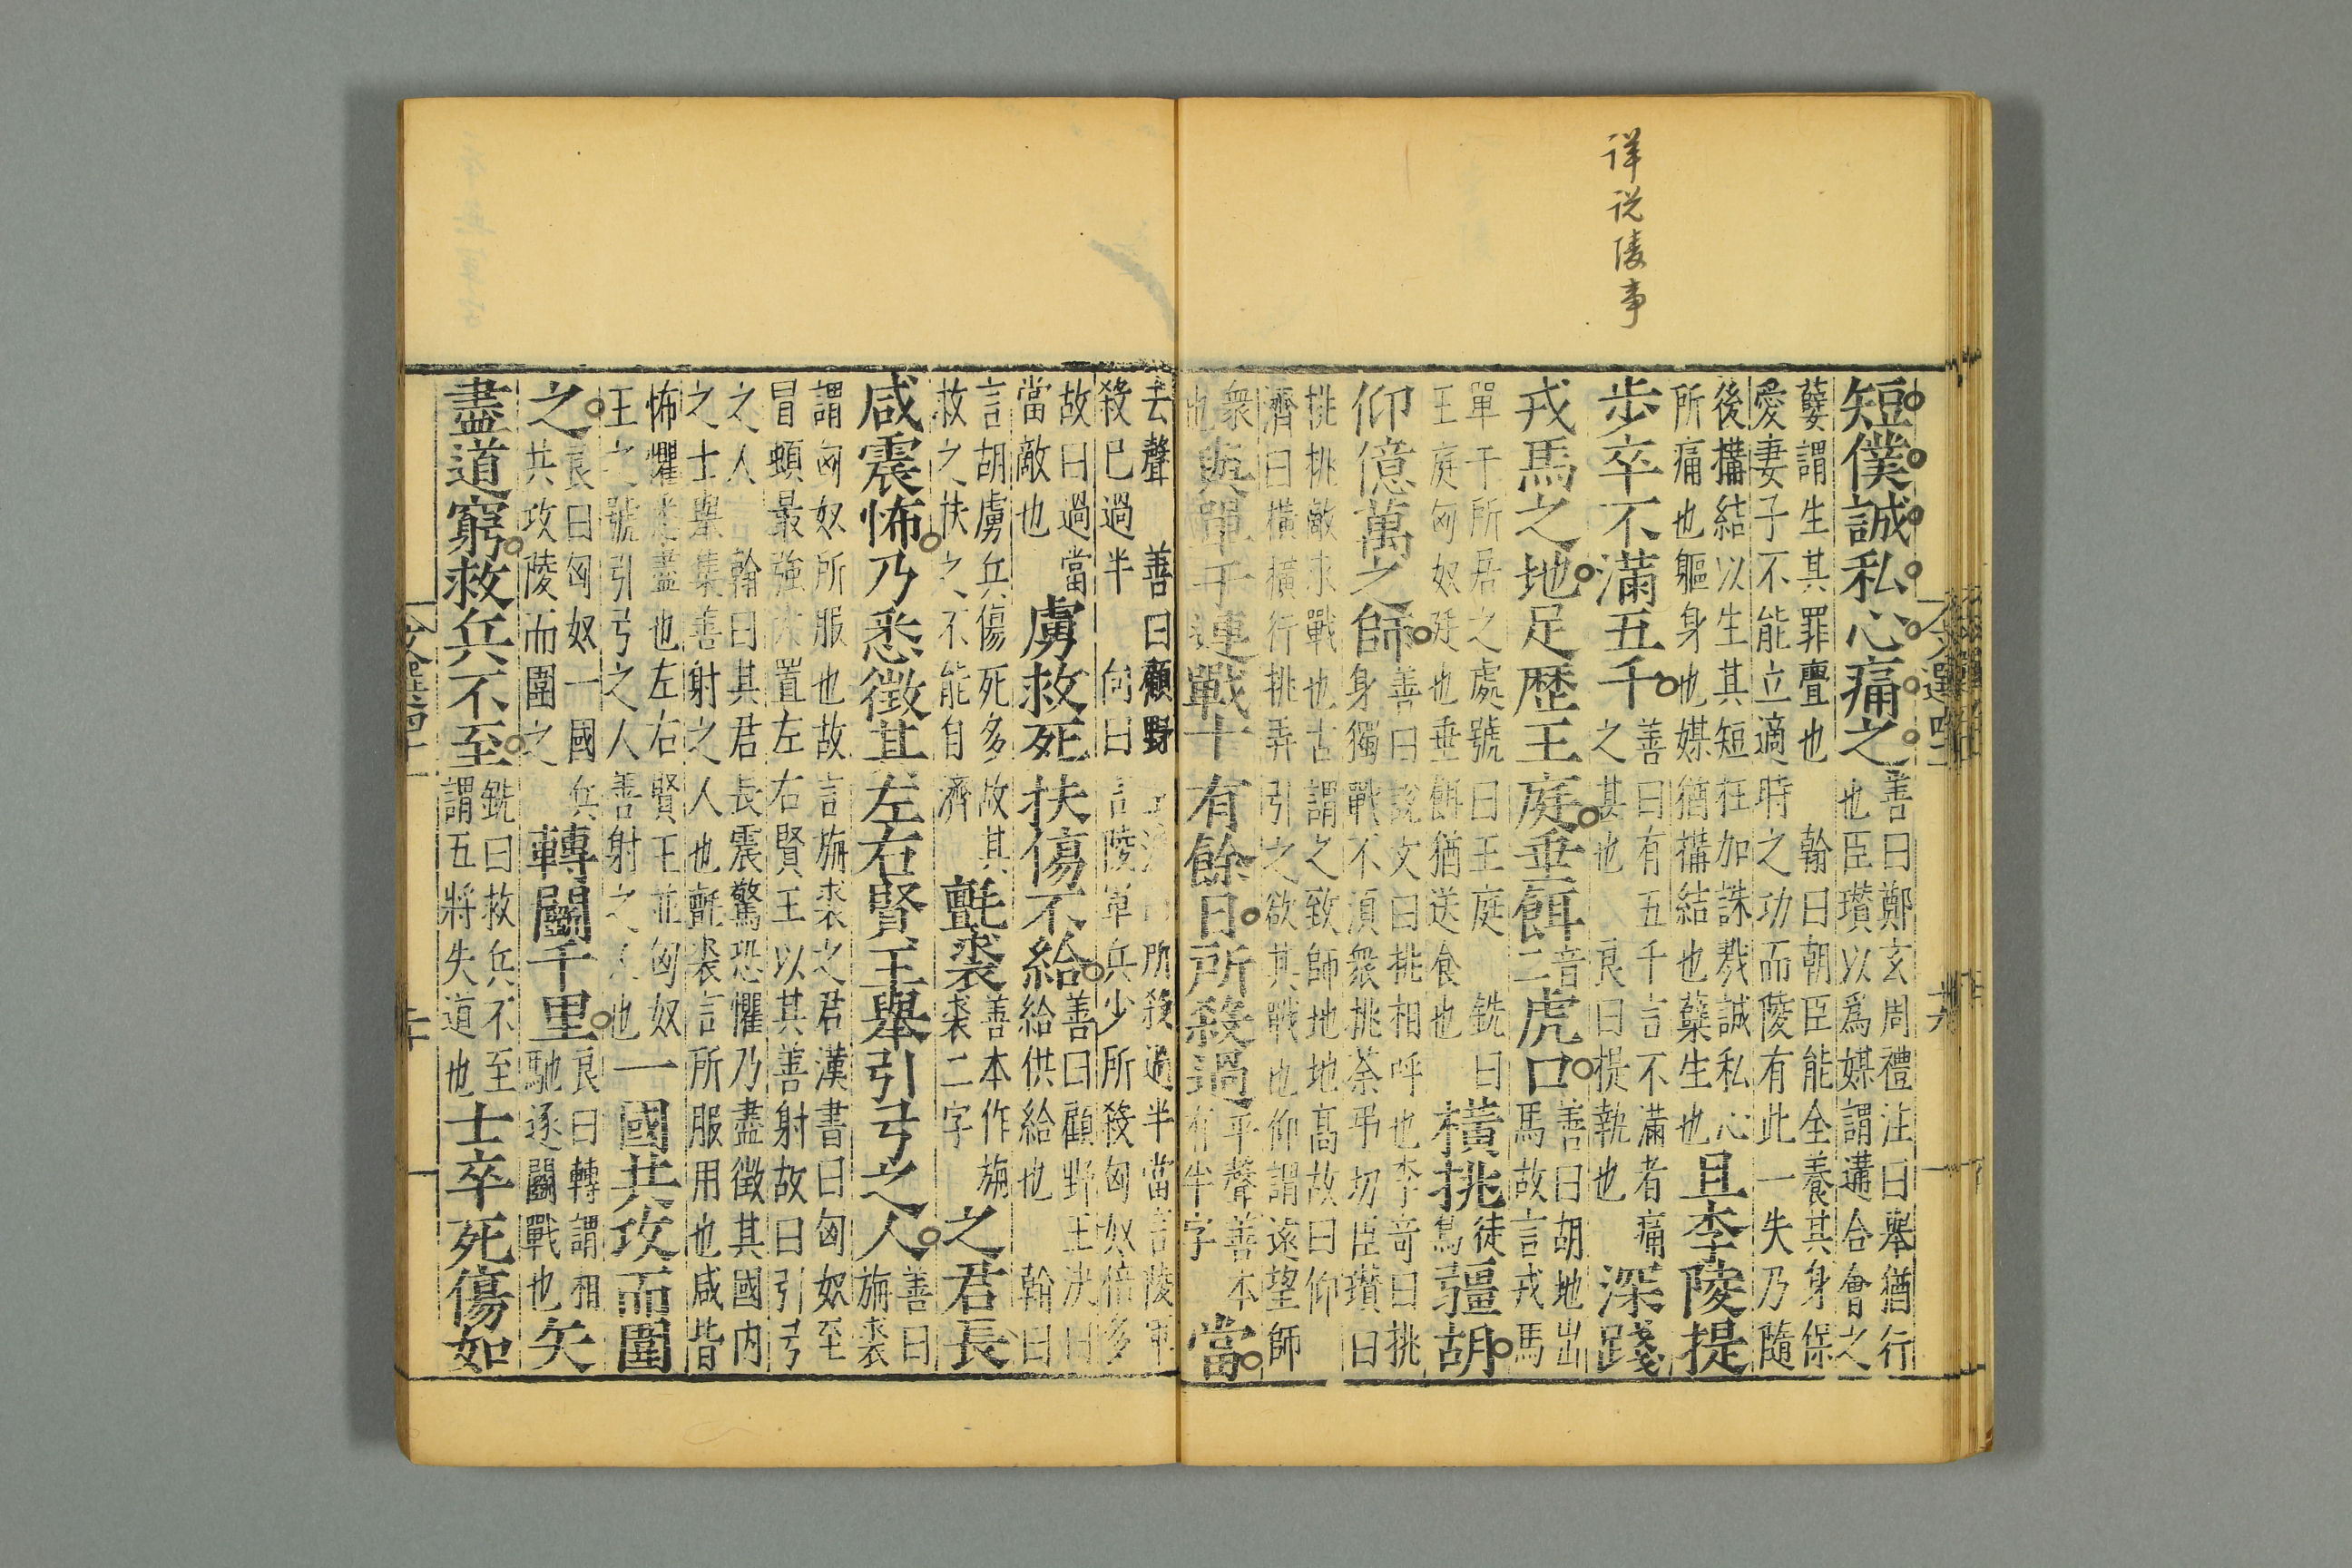 详说陵事
短僕誠私心痛之
善曰鄭玄周禮注曰舉猶行
也臣瓚以爲媒謂遘合會之
孽謂生其罪舋也 翰曰朝臣能全養其身保
愛妻子不能立適時之功而陵有此一失乃隨
後搆結以生其短枉加誅戮誠私心
所痛也軀身也媒猶搆結也蘖生也
且李陵提
歩卒不滿五千
善曰有五千言不滿者痛
之甚也 良曰提執也
深踐
戎馬之地足歷王庭垂餌
音
二
虎口
善曰胡地出
馬故言戎馬
單于所居之處號曰王庭 銑曰
王庭匈奴廷也垂餌猶送食也
橫挑
徒
鳥
彊胡
仰億萬之師
善曰說文曰挑相呼也李竒曰挑
身獨戰不須衆挑荼弔切臣瓚曰
挑挑敵求戰也古謂之致師地地高故曰仰
濟曰橫橫行挑弄引之欲其戰也仰謂遠望師
衆
也
與單于連戰十有餘日所殺過
平聲善本
有半字
當
去聲 善曰顧野 所殺過半當言陵軍
殺已過半 向曰言陵軍兵少所殺匈奴倍多
故曰過當
當敵也
虜救死扶傷不給
善曰顧野王決曰
給供給也 翰曰
言胡虜兵傷死多故其
救之扶之不能自濟
氈裘
善本作旃
裘二字
之君長
咸震怖乃悉徵其左右賢王舉引弓之人
善曰
旃裘
謂匈奴所服也故言旃裘之君漢書曰匈奴至
冒頓最強 置左右賢王以其善射故曰引弓
之人 翰曰其君長震驚恐懼乃盡徵其國内
之士舉集善射之人也氈裘言所服用也咸皆
怖懼悉盡也左右賢王並匈奴
王之號引弓之人善射之人也
一國共攻而圍
之
良曰匈奴一國兵
共攻陵而圍之
轉鬭千里
良曰轉謂相
馳逐鬭戰也
矢
盡道窮救兵不至
銑曰救兵不至
謂五將失道也
士卒死傷如